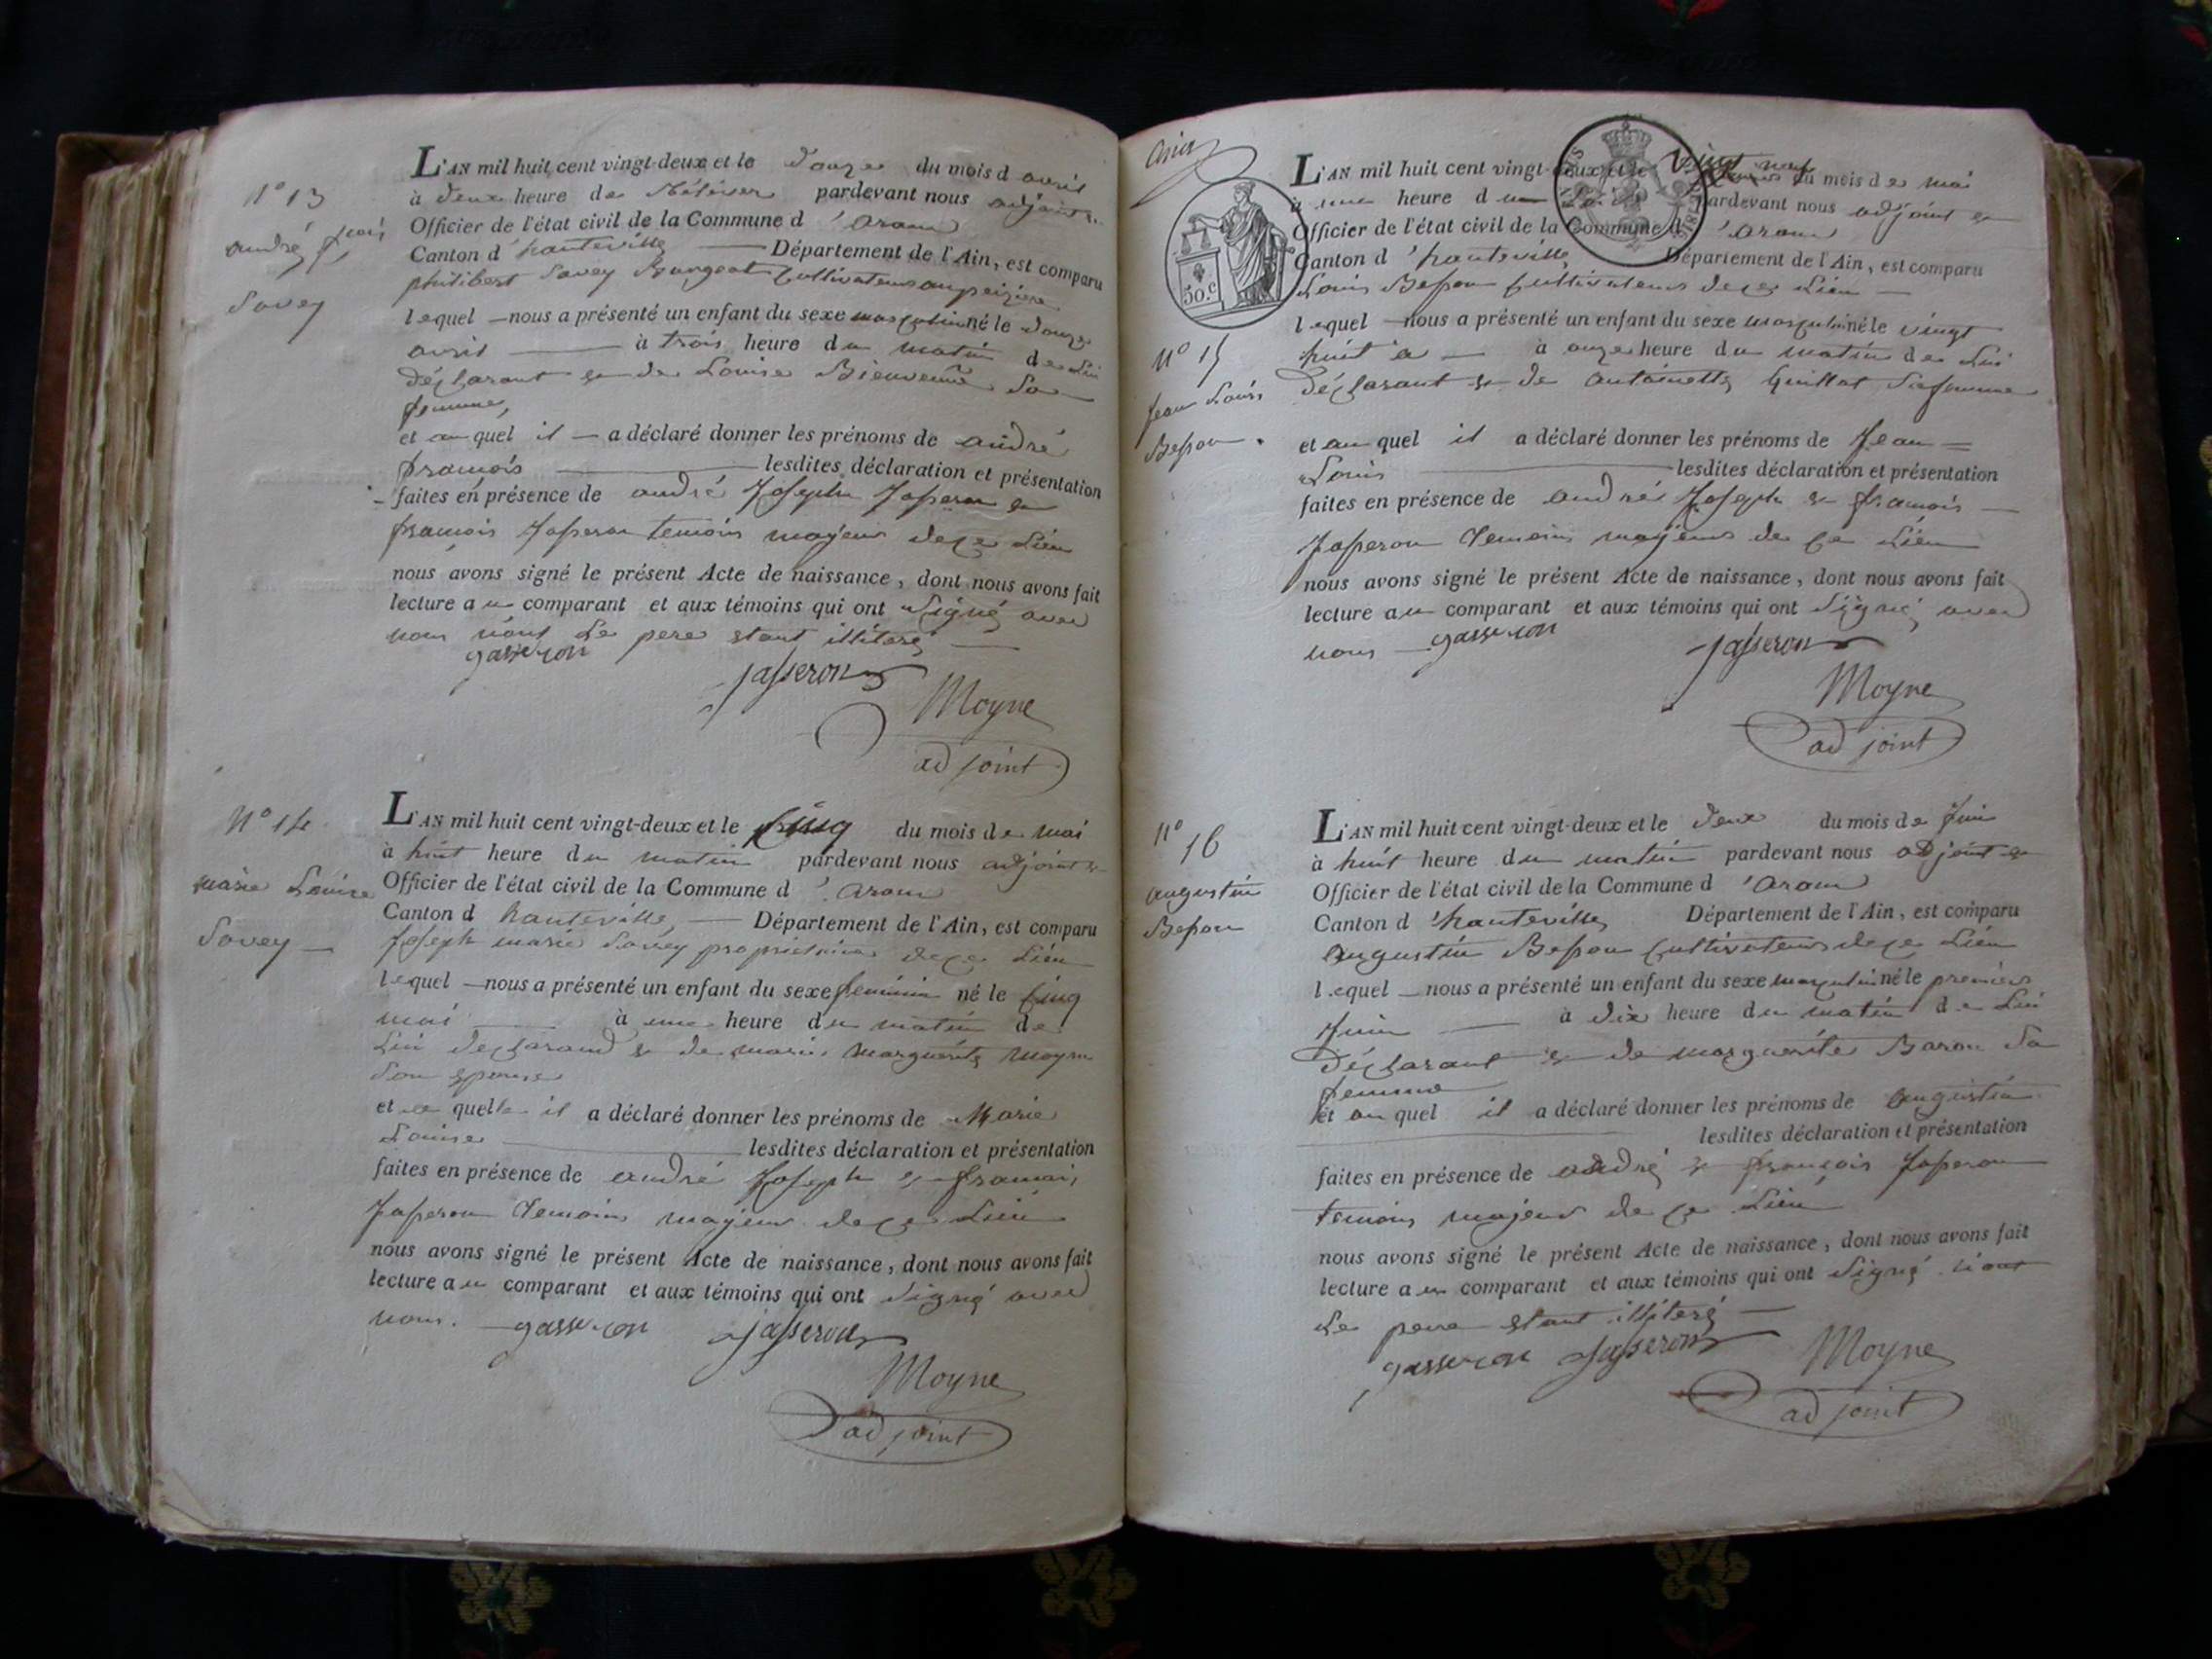 N° 13
andré fcois
Savey
L'AN mil huit cent vingt-deux et le douze du mois d avril
à deux heure de pardevant nous adjoint
Officier de l'état civil de la Commune d 'aranc
Canton d 'hauteville Département de l'Ain, est comparu
philibert Savey Bourgeat Cultivateur
lequel nous a présenté un enfant du sexe masculin né le douze
avril à trois heure du matin de Lui
déclarant & de Louise Bienvenue Sa
femme,
et auquel il a déclaré donner les prénoms de andré
francois lesdites déclaration et présentation
faites en présence de andré Joseph Jasseron &
francois Jasseron temoins majeur de ce Lieu
nous avons signé le présent Acte de naissance, dont nous avons fait
lecture au comparant et aux témoins qui ont Signé avec
nous non Le pere etant illiteré
gasseron
jasseron
Moyne
adjoint
N° 14
marie Louise
Savey
L'AN mil huit cent vingt-deux et le Cinq du mois de mai
à huit heure du matin pardevant nous adjoint &
Officier de l'état civil de la Commune d 'aranc
Canton d hauteville Département de l'Ain, est comparu
Joseph marie Savey proprietaire de ce Lieu
lequel nous a présenté un enfant du sexe feminin né le Cinq
mai à une heure du matin de
Lui declarand & de marie marguerite moyne
Son epouse
et a quelle il a déclaré donner les prénoms de Marie
Louise lesdites déclaration et présentation
faites en présence de andré Joseph & francois
Jasseron temoins majeur de ce Lieu
nous avons signé le présent Acte de naissance, dont nous avons fait
lecture au comparant et aux témoins qui ont Signé avec
nous. gasseron jasseron
Moyne
adjoint
50.c
N° 15
Jean Louis
Besson
L'AN mil huit cent vingt-deux et le vingt neuf du mois de mai
à une heure du pardevant nous adjoint &
Officier de l'état civil de la Commune d 'aranc
Canton d 'hauteville Département de l'Ain, est comparu
Louis Besson Cultivateur de ce Lieu
lequel nous a présenté un enfant du sexe masculin né le vingt
huit à onze heure du matin de Lui
déclarant & de antoinette Guillot Sa femme
et au quel il a déclaré donner les prénoms de Jean
Louis lesdites déclaration et présentation
faites en présence de andré Joseph & francois
Jasseron temoins majeur de ce Lieu
nous avons signé le présent Acte de naissance, dont nous avons fait
lecture au comparant et aux témoins qui ont Signé avec
nous gasseron
jasseron
Moyne
adjoint
N° 16
augustin
Besson
L'AN mil huit cent vingt-deux et le deux du mois de Juin
à huit heure du matin pardevant nous adjoint &
Officier de l'état civil de la Commune d 'aranc
Canton d 'hauteville Département de l'Ain, est comparu
augustin Besson Cultivateur de ce Lieu
lequel nous a présenté un enfant du sexe masculin né le premier
Juin à dix heure du matin de Lui
déclarant & de marguerite Baron Sa
femme
et au quel il a déclaré donner les prénoms de augustin
lesdites déclaration et présentation
faites en présence de andré & francois Jasseron
temoins majeur de ce Lieu
nous avons signé le présent Acte de naissance, dont nous avons fait
lecture au comparant et aux témoins qui ont Signé non
Le pere etant illiteré
gasseron jasseron
Moyne
adjoint